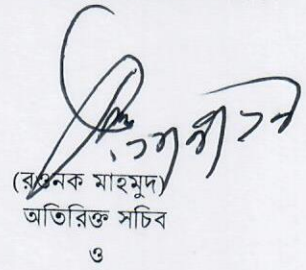 (রওনক মাহমুদ)
অতিরিক্ত সচিব
ও